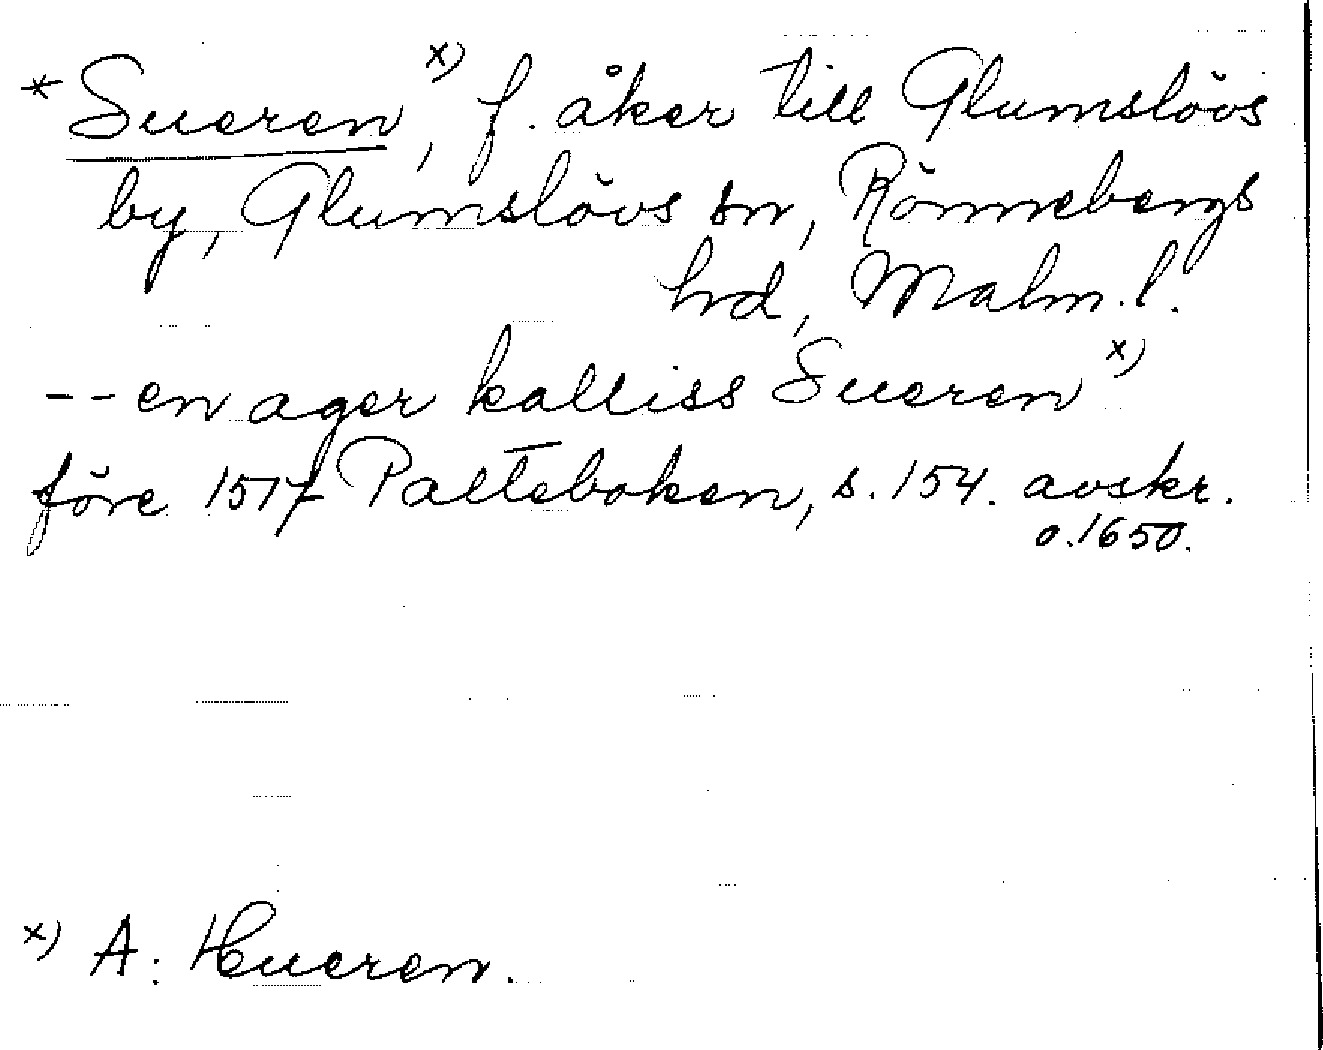 * Sueren x), f. åker till Glumslövs
by, Glumslövs sn, Rönnebergs
hrd, Malm. l.
-- en ager kalliss Sueren x)
före 1517 Palteboken, s. 154. avskr.
o. 1650.
x) A: Hueren.